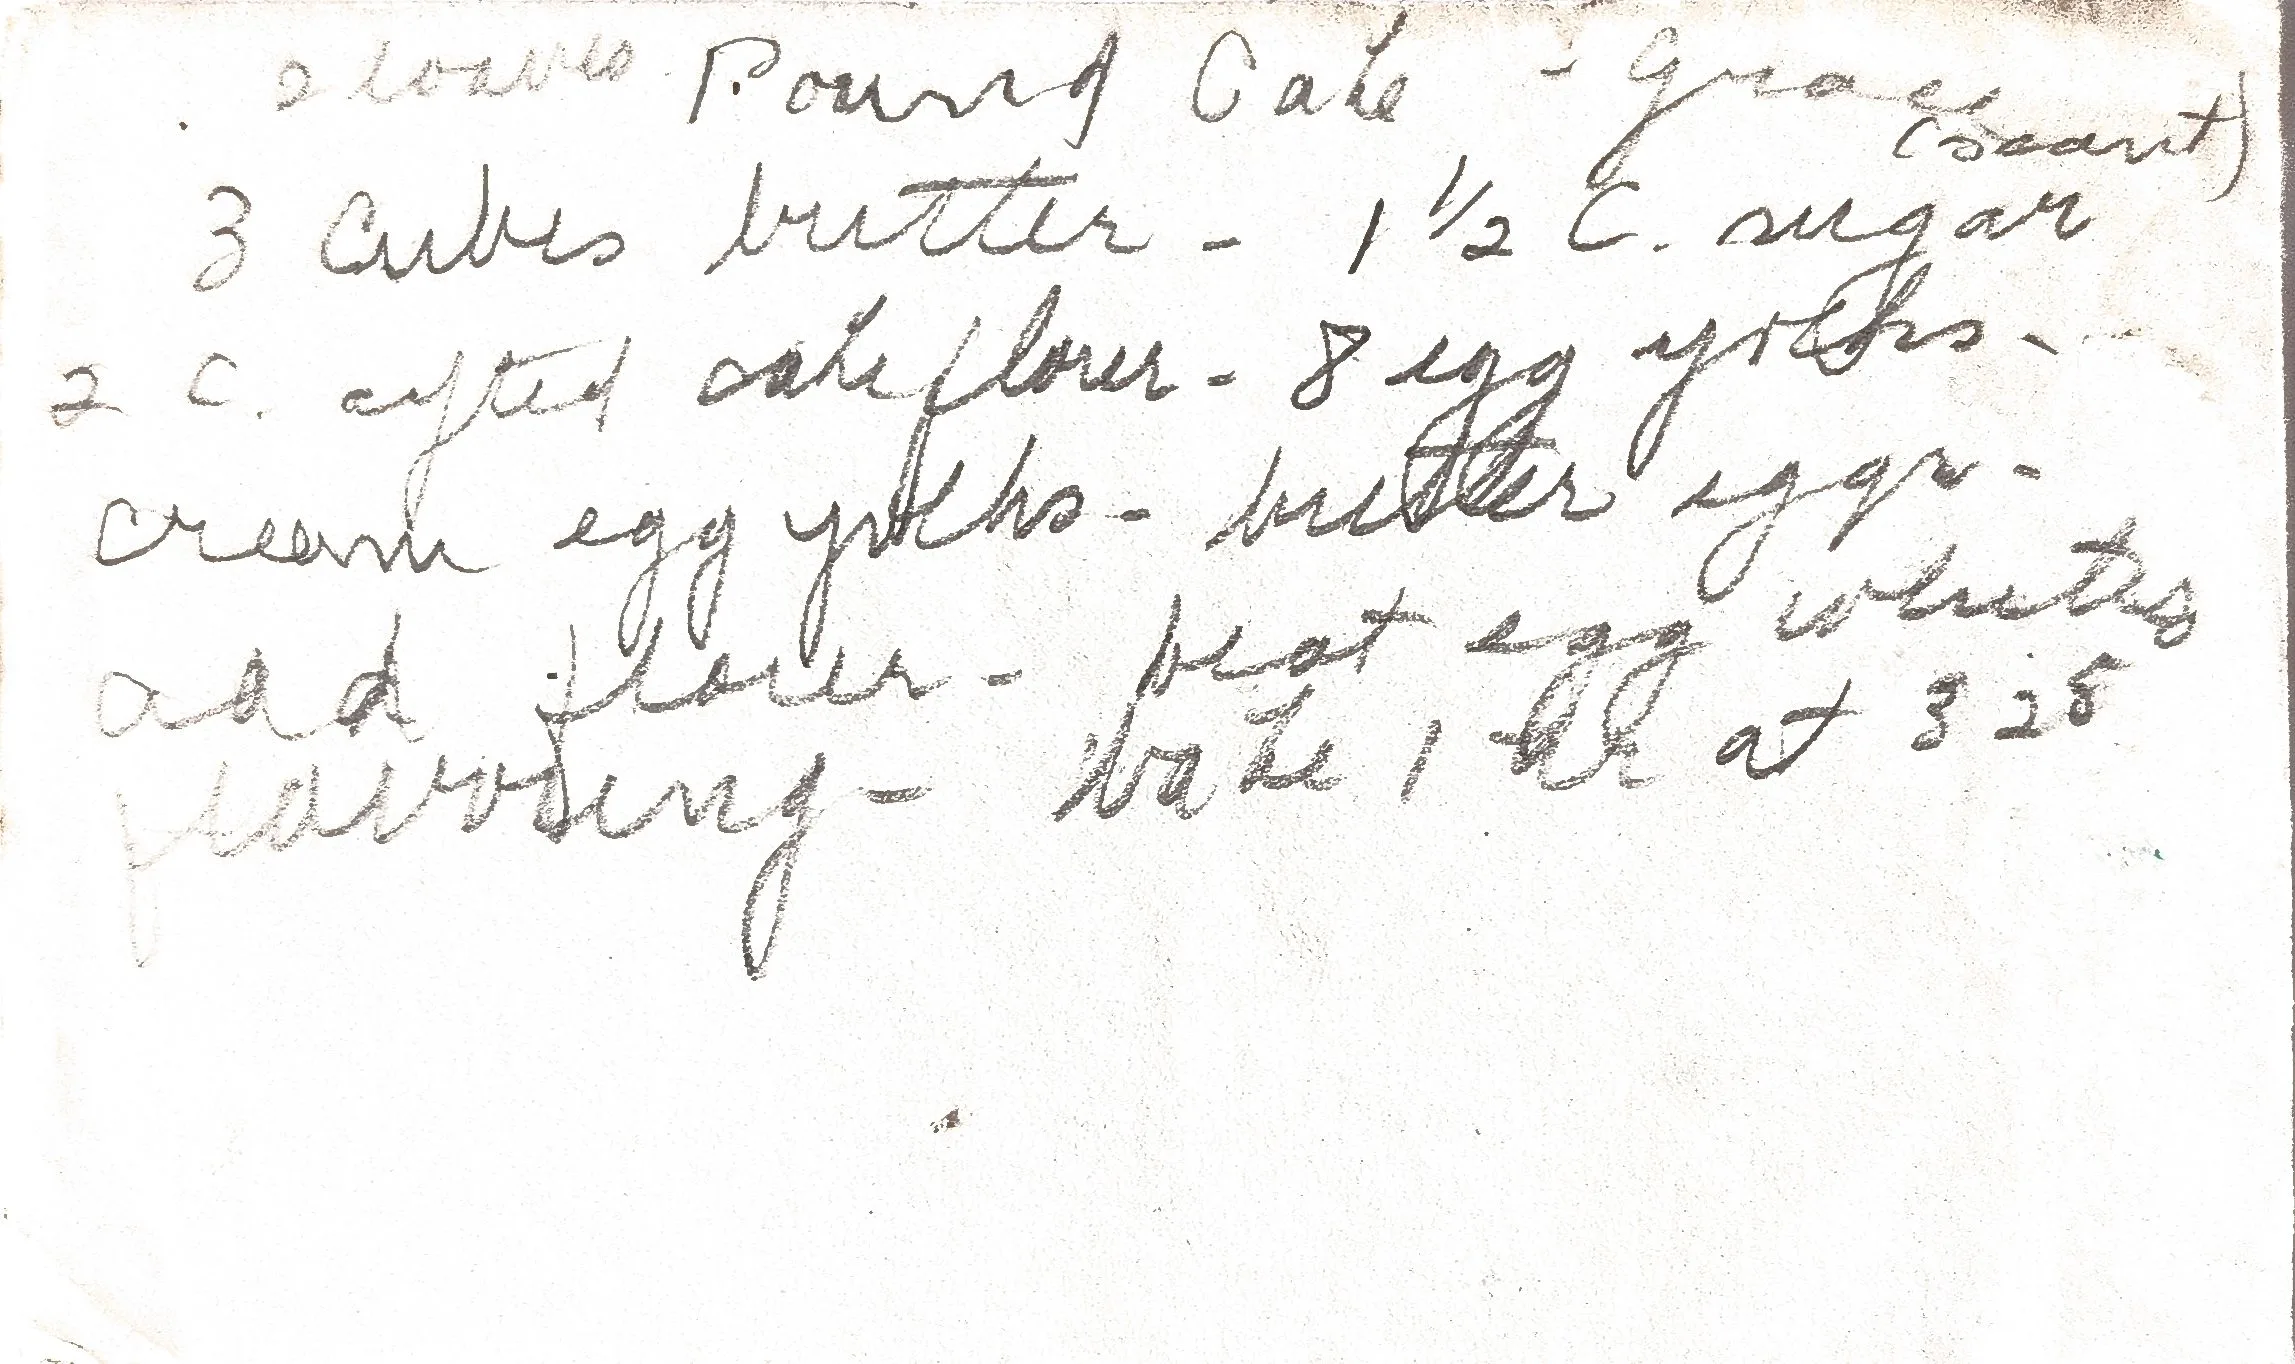 2 loaves Pound Cake - Grace
(scant)
3 Cubes butter - 1 1/2 C. sugar
2 C. sifted cake flour - 8 egg yolks -
cream egg yolks - butter eggs -
add flour - beat egg whites
flavoring - bake 1 hr at 325